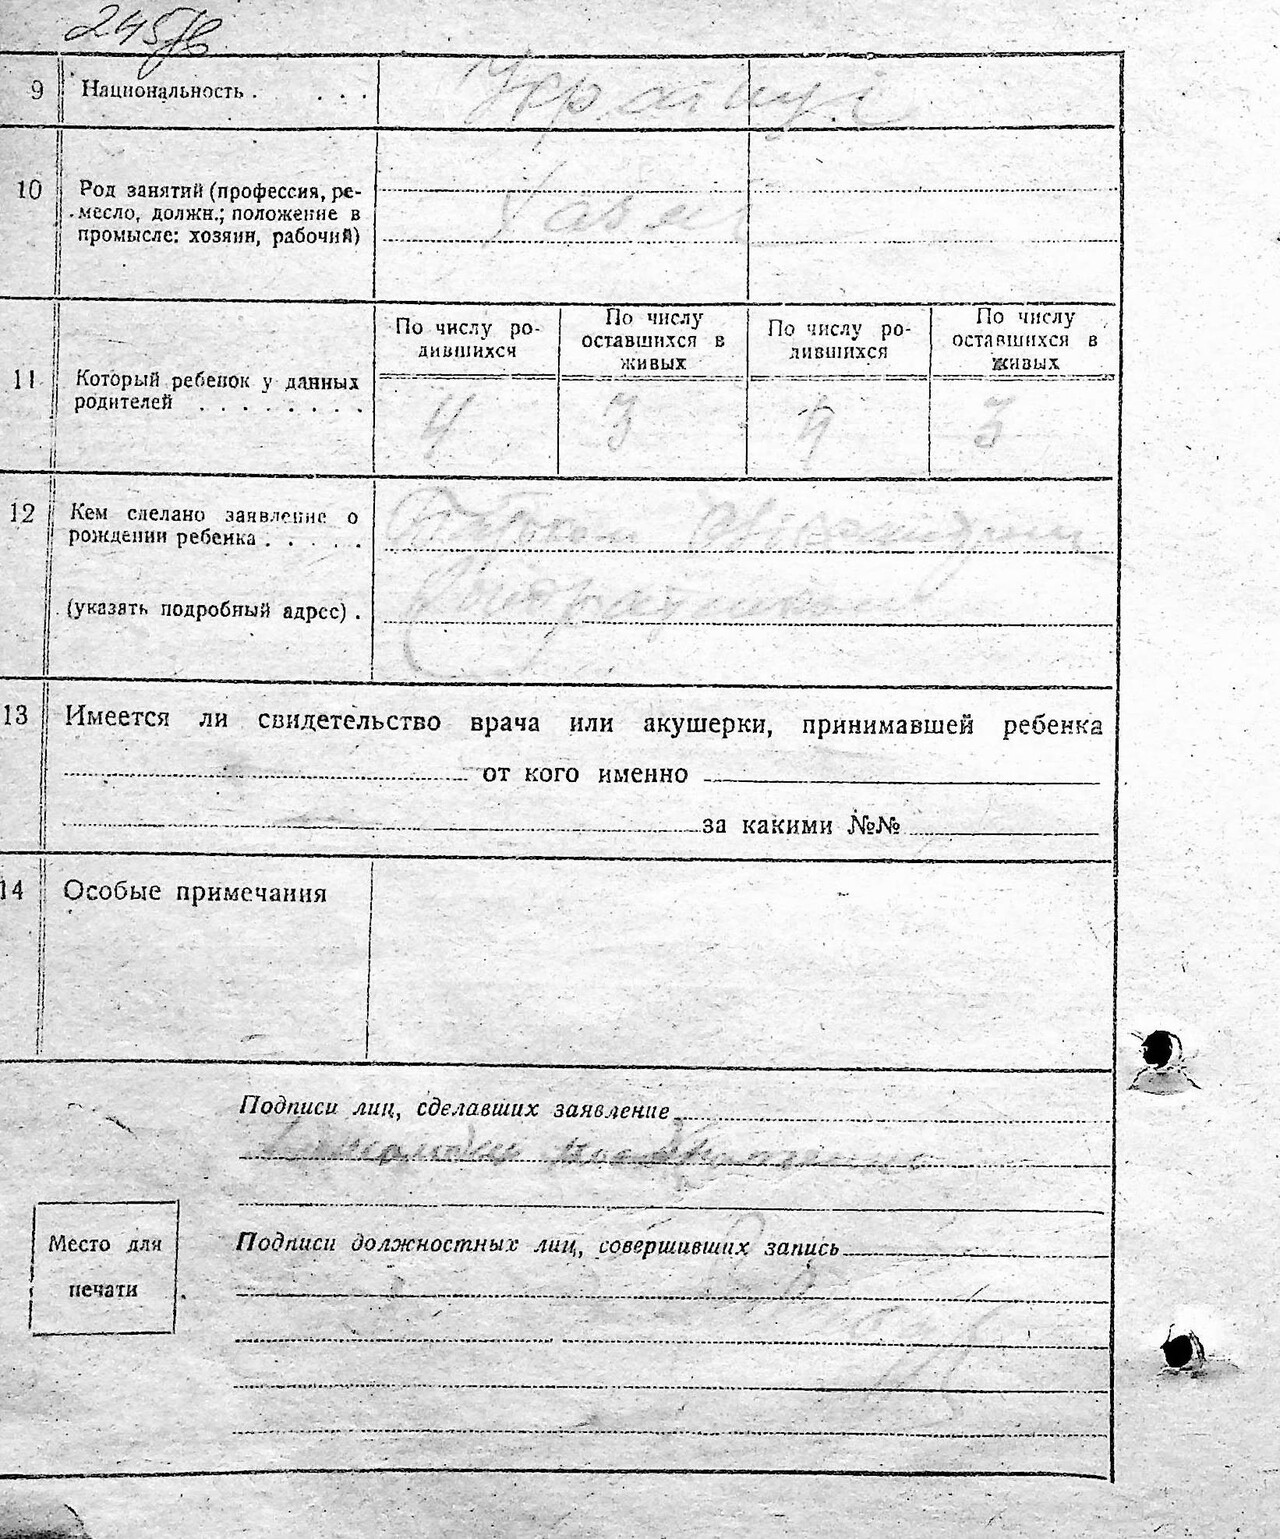 9 Национальность . . . . Українці
10 Род занятий (профессия, ре-
месло, должн.; положение в
промысле: хозяин, рабочий)
По числу ро-
дившихся
По числу
оставшихся в
живых
По числу ро-
дившихся
По числу
оставшихся в
живых
11 Который ребенок у данных
родителей . . . . . . . .
4 3 4 3
12 Кем сделано заявление о
рождении ребенка . . . . .
(указать подробный адрес) .
13 Имеется ли свидетельство врача или акушерки, принимавшей ребенка
от кого именно
за какими №№
14 Особые примечания
Подписи лиц, сделавших заявление
Место для
печати
Подписи должностных лиц, совершивших запись